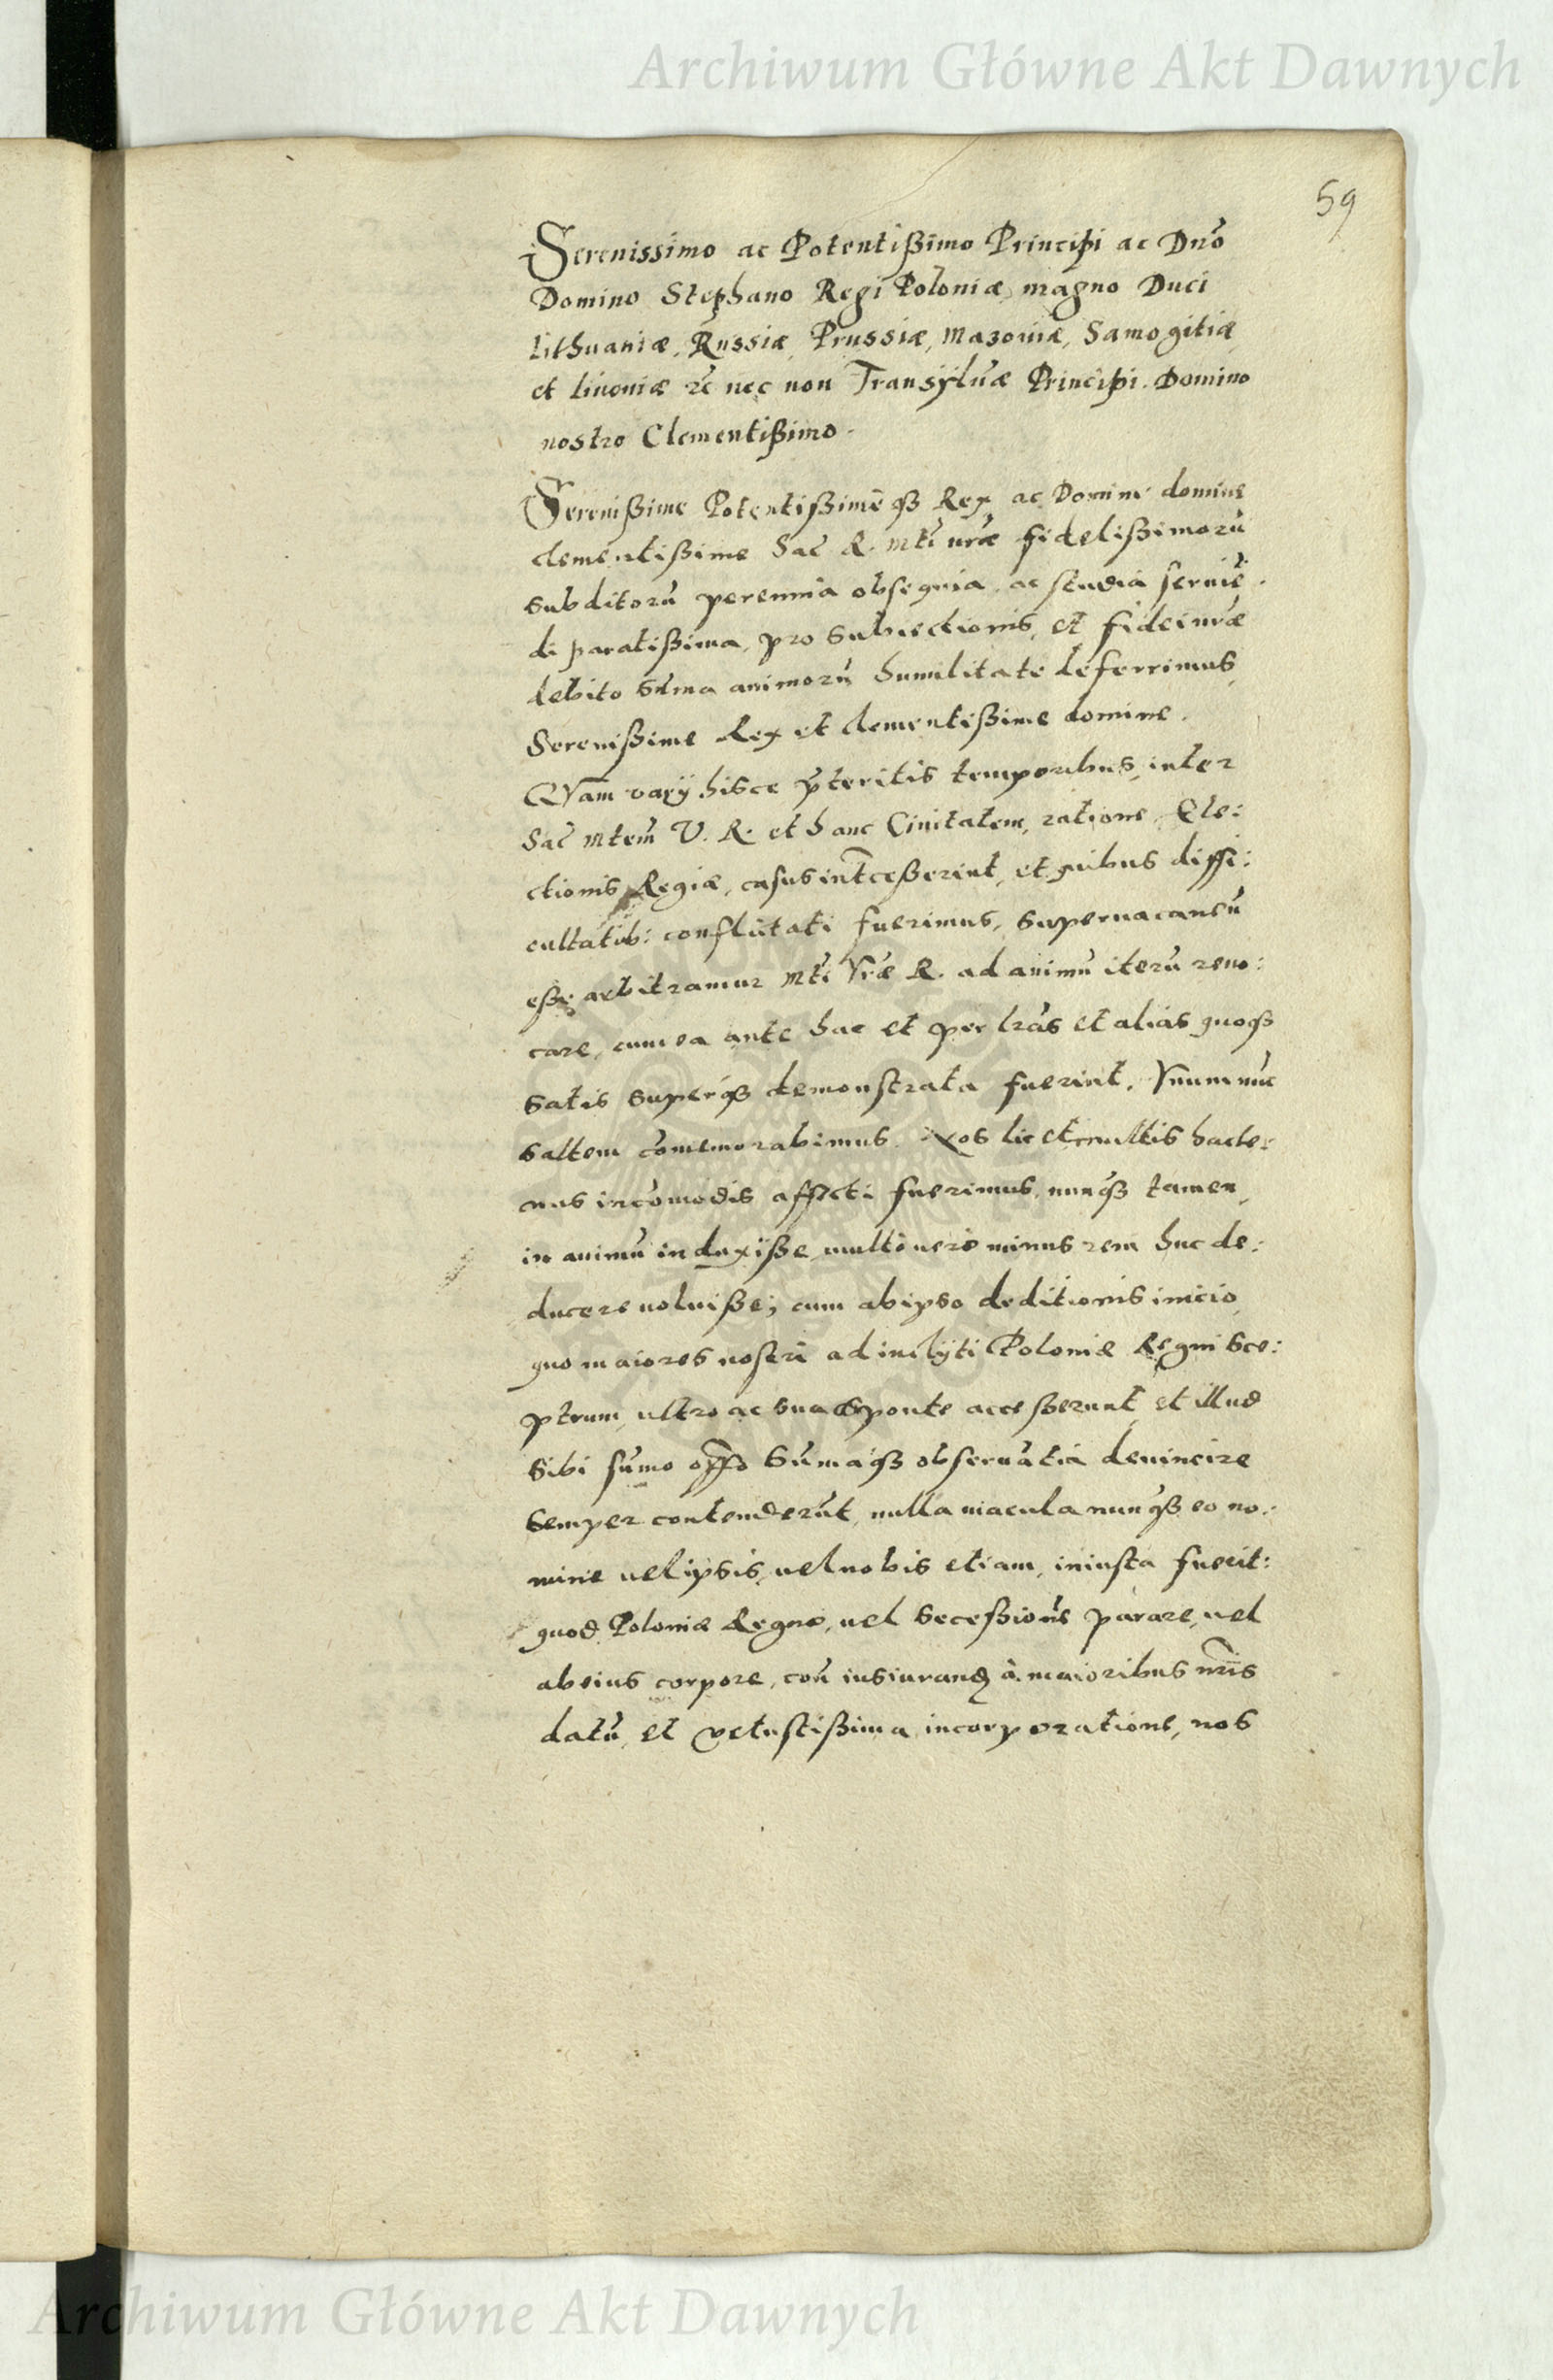 Archiwum Główne Akt Dawnych
59
Serenissimo ac Potentißimo Principi ac Dnō
Domino Stephano Regi Poloniæ, magno Duci
Lithuaniæ, Russiæ, Prussiæ, Mazoviæ, Samogitiæ,
et Livoniæ &c nec non Transylvæ Principi. Domino
nostro Clementißimo.
Serenißime Potentißimeq₃ Rex ac Domine domine
clementißime Sac̄ R. Mti vræ fidelißimorū
subditorū perennia obsequia, ac studia servie-
di paratißima, pro subiectionis, et fidei nr̄æ
debito sūma animorū humilitate deferrimus,
Serenißime Rex et clementißime domine.
QVam varÿ hisce p̄teritis temporibus, inter
Sac̄ Mtem̄ V. R. et hanc Civitatem, ratione Ele:
ctionis Regiæ, casus int̄ceßerint, et quibus diffi:
cultatib: conflictati fuerimus, supervacaneū
eße arbitramur Mti Vr̄æ R. ad animū iterū revo:
care, cum ea ante hac et per lr̄as et alias quoq₃
satis superq₃ demonstrata fuerint. Vnum nūc
saltem cōmemorabimus. Nos licet multis hacte:
nus incōmodis affecti fuerimus, nunq₃ tamen,
in animū induxiße, multo vero minus rem huc de:
ducere voluiße; cum ab ipso deditionis inicio,
quo maiores nostri ad inclÿti Poloniæ Regni Sce:
ptrum, ultro ac sua sponte acceßerunt, et illud
sibi sūmo off̄o sūmaq₃ observātia devincire
semper contenderūt, nulla macula nunq₃ eo no:
mine vel ipsis, vel nobis etiam, iniusta fuerit:
quod Poloniæ Regno, vel secessionē parare, vel
ab eius corpore, con̄ iusiurand à maioribus nr̄is
datū, et vetustißima incorporatione, nos
Archiwum Główne Akt Dawnych